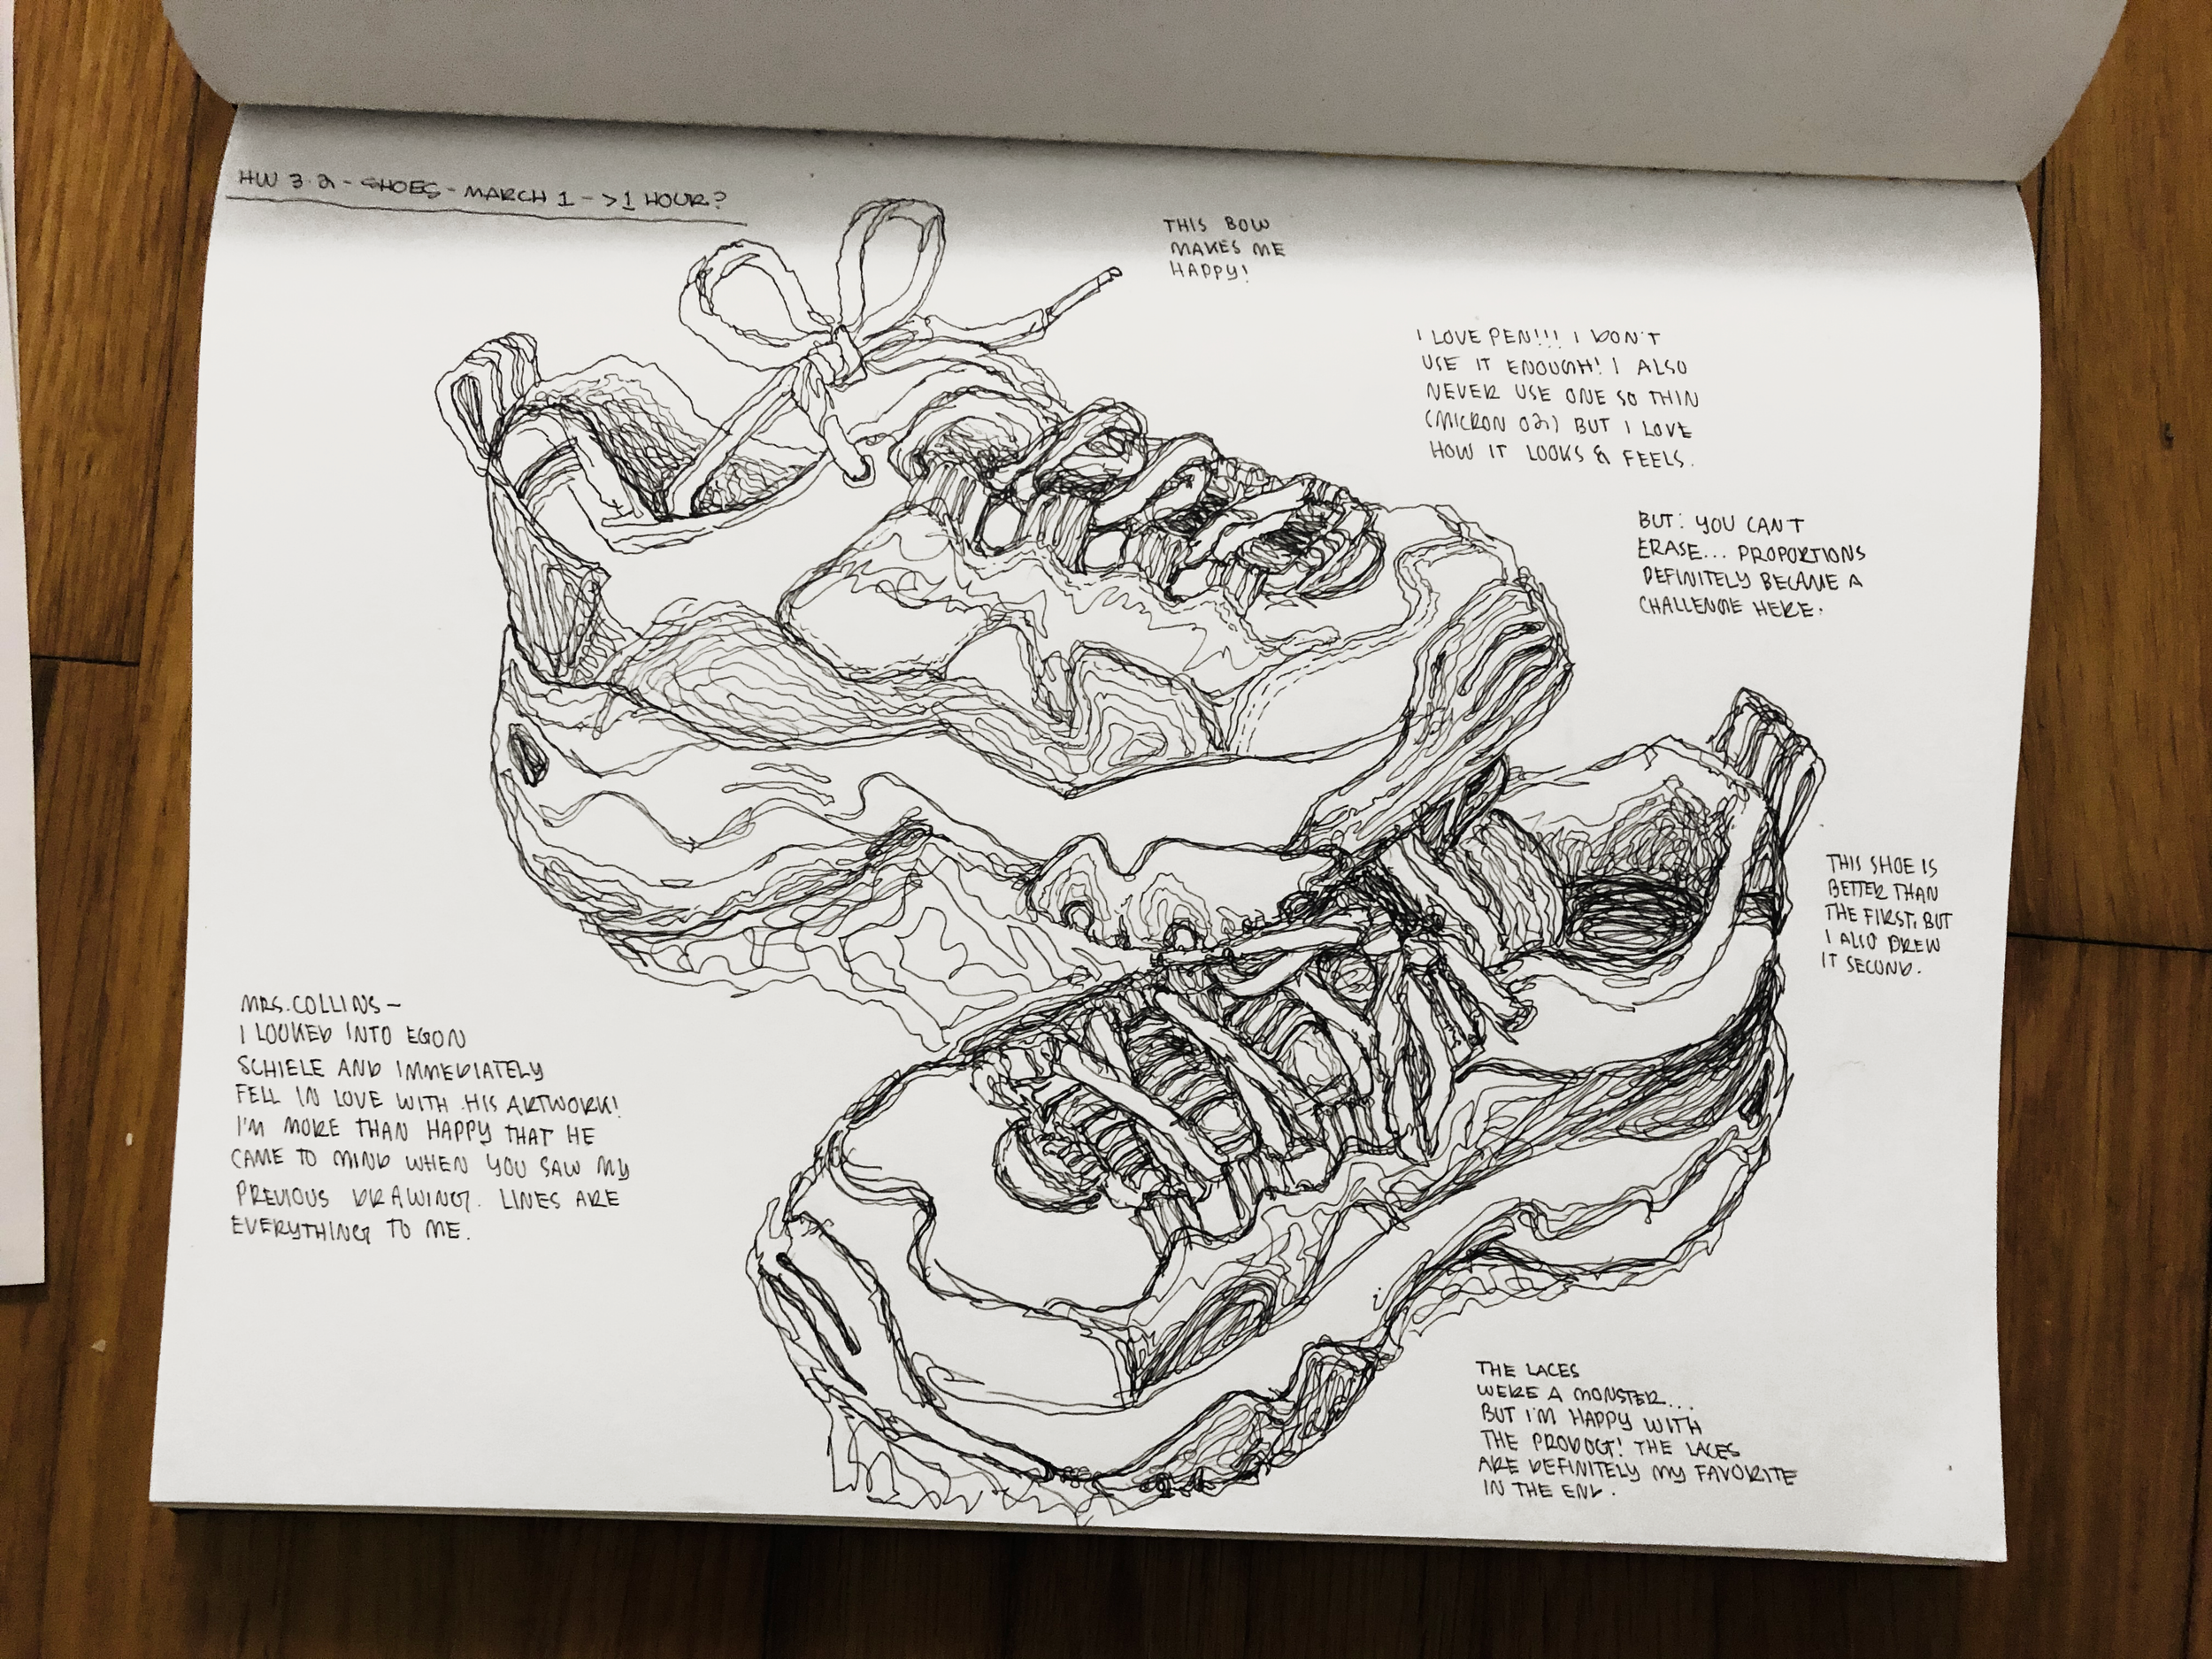 HW 3.2 - SHOES - MARCH 1 - >1 HOUR?
THIS BOW
MAKES ME
HAPPY!
I LOVE PEN!!! I DON'T
USE IT ENOUGH! I ALSO
NEVER USE ONE SO THIN
(MICRON 02) BUT I LOVE
HOW IT LOOKS & FEELS.
BUT: YOU CAN'T
ERASE... PROPORTIONS
DEFINITELY BECAME A
CHALLENGE HERE.
THIS SHOE IS
BETTER THAN
THE FIRST, BUT
I ALSO DREW
IT SECOND.
MRS. COLLINS -
I LOOKED INTO EGON
SCHIELE AND IMMEDIATELY
FELL IN LOVE WITH HIS ARTWORK!
I'M MORE THAN HAPPY THAT HE
CAME TO MIND WHEN YOU SAW MY
PREVIOUS DRAWING. LINES ARE
EVERYTHING TO ME.
THE LACES
WERE A MONSTER...
BUT I'M HAPPY WITH
THE PRODUCT! THE LACES
ARE DEFINITELY MY FAVORITE
IN THE END.